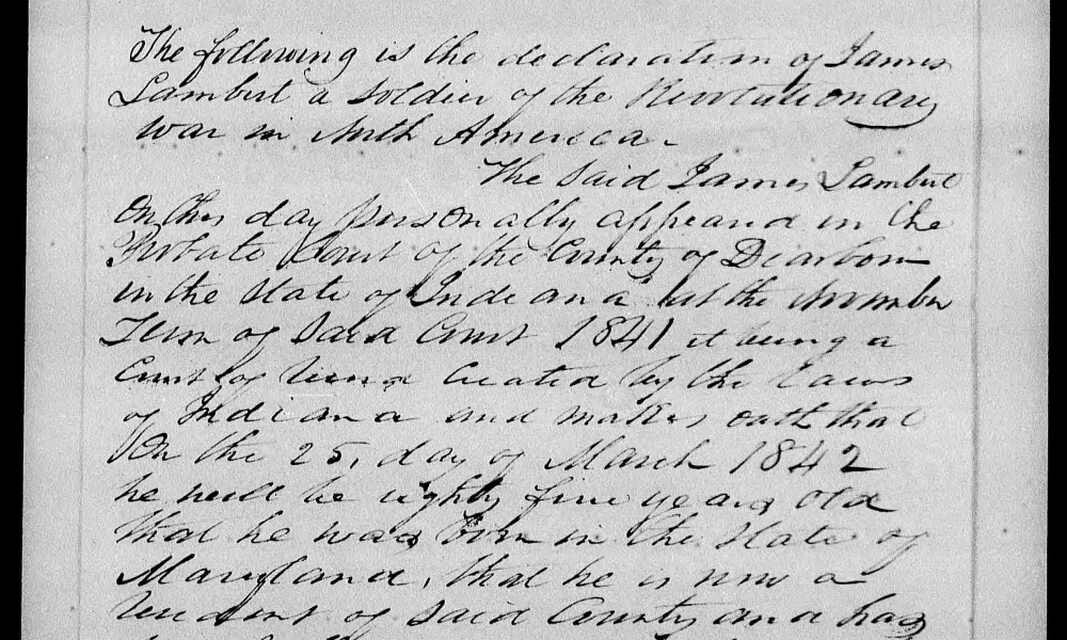 The following is the declaration of James
Lambert a Soldier of the Revolutionary
War in North America.
The Said James Lambert
On this day personally appeared in the
Probate Court of the County of Dearborn
in the State of Indiana at the November
Term of Said Court 1841 it being a
Court of Record created by the Laws
of Indiana and makes oath that
On the 25, day of March 1842
he will be eighty five years old
that he was born in the State of
Maryland, that he is now a
resident of said County and has